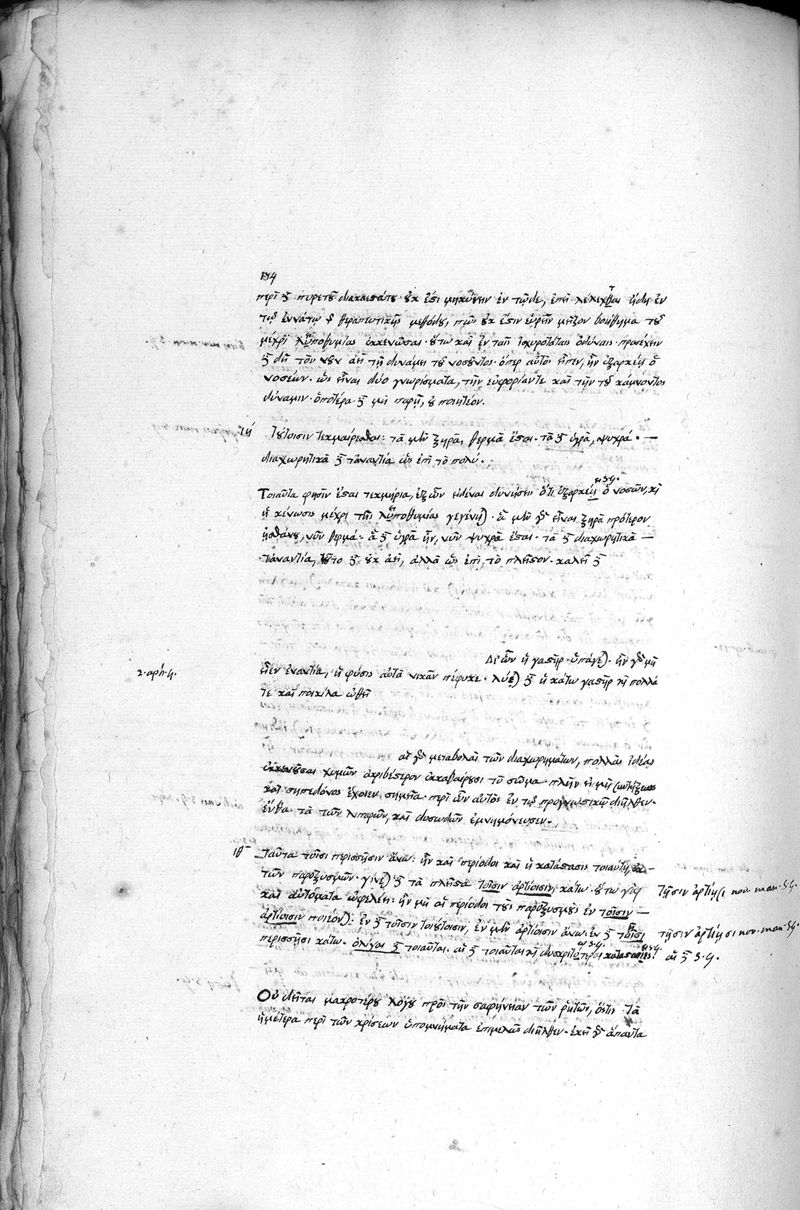 περὶ δὲ πυρετοῦ διακαεστάτου οὐκ ἔστι μηκύνειν ἐν τῷδε, ἐπεὶ λέλεχθαι ἤδη ἐν
τῷ ἐννάτῳ τῆς θεραπευτικῆς μεθόδου, πῶς οὐκ ἔστιν εὑρεῖν μεῖζον βοήθημα τοῦ
μέχρι λειποθυμίας ἐκκενῶσαι. οὕτω καὶ ἐν ταῖς ἰσχυροτάταις ὀδύναις. προσέχειν
δὲ δεῖ τὸν νοῦν ἀεὶ τῇ δυνάμει τοῦ νοσοῦντος. ὅπερ αὐτὸς εἶπεν, ἢν ἐξαρκέῃ ὁ
νοσέων. ὡς εἶναι δύο γνωρίσματα, τὴν εὐφορίαν τε καὶ τὴν τοῦ κάμνοντος
δύναμιν. ὁποτέρα δὲ μὴ παρῇ, οὐ ποιητέον.
ιη Τούτοισιν τεκμαίρεσθαι: τὰ μὲν ξηρὰ, θερμὰ ἔσται. τὰ δὲ ὑγρὰ, ψυχρά. —
διαχωρητικὰ δὲ τἀναντία ὡς ἐπὶ τὸ πολύ.
Τοιαῦτα φησὶν ἔσται τεκμήρια, ἐξ ὧν εἰδέναι δυνήσῃ ὅτι ἐξαρκέῃ ὁ νοσῶν, καὶ
ἡ κένωσις μέχρι τῆς λειποθυμίας γεγένηται. ἃ μὲν γὰρ εἶναι ξηρὰ πρότερον
ᾐσθάνου, νῦν θερμά. ἃ δὲ ὑγρὰ ἦν, νῦν ψυχρὰ ἔσται. τὰ δὲ διαχωρητικὰ —
τἀναντία, τοῦτο δὲ οὐκ ἀεὶ, ἀλλὰ ὡς ἐπὶ τὸ πλεῖστον. καλεῖ δὲ
Δι' ὧν ἡ γαστὴρ ὑπάγεται. ἢν γὰρ μὴ
2. aph. 4. εἶεν ἐναντία, ἡ φύσις αὐτὰ νικᾶν πέφυκε. λύεται δὲ ἡ κάτω γαστὴρ καὶ πολλά
τε καὶ ποικίλα ὠθεῖ
αἱ γὰρ μεταβολαὶ τῶν διαχωρημάτων, πολλὰς ἰδέας
ἐκκενοῦσαι χυμῶν ἀκριβέστερον ἐκκαθαίρουσι τὸ σῶμα. πλὴν εἰ μὴ συντήξεως
καὶ σηπεδόνος ἔχοιεν σημεῖα. περὶ ὧν αὐτὸς ἐν τῷ προγνωστικῷ διῆλθεν.
ἔνθα τὰ τῶν λιπαρῶν, καὶ δυσωδῶν ἐμνημόνευσεν.
ιθ Ταῦτα τοῖσι περισσῇσιν ἄνω: ἢν καὶ περίοδοι καὶ ἡ κατάστασις τοιαύτη ἐῃ
τῶν παροξυσμῶν. γίνεται δὲ τὰ πλεῖστα τοῖσιν ἀρτίοισιν, κάτω. οὕτω γὰρ τῇσιν ἀρτίῃσι nov. man. S. G.
καὶ αὐτόματα ὠφελέει: ἢν μὴ αἱ περίοδοι τοὺς παροξυσμοὺς ἐν τοῖσιν —
ἀρτίοισιν ποιέονται. ἐν δὲ τοῖσιν τοιούτοισιν, ἐν μὲν ἀρτίοισιν ἄνω. ἐν δὲ τοῖσι τῇσιν ἀρτίῃσι nov. man. S. G.
περισσῇσι κάτω. ὀλίγαι δὲ τοιαῦται. αἱ δὲ τοιαῦται καὶ δυσκριτώτεροι καταστάσιες. αἱ δὲ S. G.
Οὐ δεῖται μακροτέρου λόγου πρὸς τὴν σαφήνειαν τῶν ῥητῶν, ὅστις τὰ
ἡμέτερα περὶ τῶν κρίσεων ὑπομνήματα ἐπιμελῶς διῆλθεν. ἐκεῖ γὰρ ἅπαντα